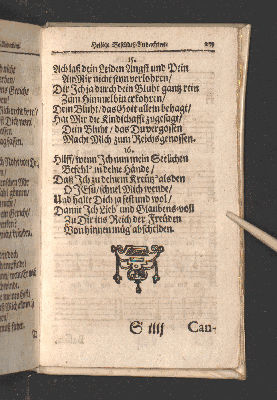 15.
Ach laß dein Leiden Angst und Pein
An Mir nicht seyn verlohren/
Dir Ich ja durch dein Bluht gantz rein
Zum Himmel bin erkohren/
Dein Bluht/ das Gott allein behagt/
Hat Mir die Kindschafft zugesagt/
Dein Bluht/ das Du vergossen
Macht Mich zum Reichsgenossen.
16.
Hilff/ wenn Ich nun mein Seelichen
Befehl' in deine Hände/
Daß Ich zu deinem Kreutz' alsden
O Jesu/ schnel Mich wende/
Und halte Dich ja fest und wol/
Damit Ich Lieb' und Glaubens-voll
Zu Dir ins Reich der Freuden
Von hinnen müg' abscheiden.
S iiij
Can-